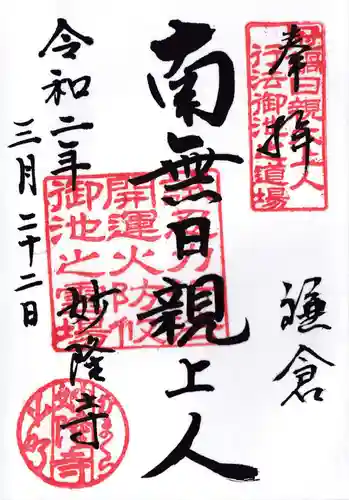 奉拝
鎌倉
南無日親上人
令和二年
三月二十二日
妙隆寺
行法御池道場
開運火防
御池之霊場